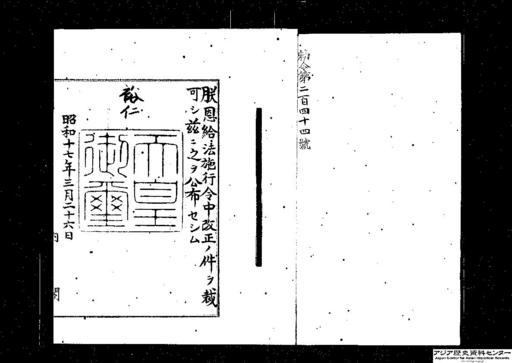 勅令第二百四十四號
朕恩給法施行令中改正ノ件ヲ裁
可シ茲ニ之ヲ公布セシム
裕仁
天皇
御璽
昭和十七年三月二十六日
内閣
アジア歴史資料センター
Japan Center for Asian Historical Records